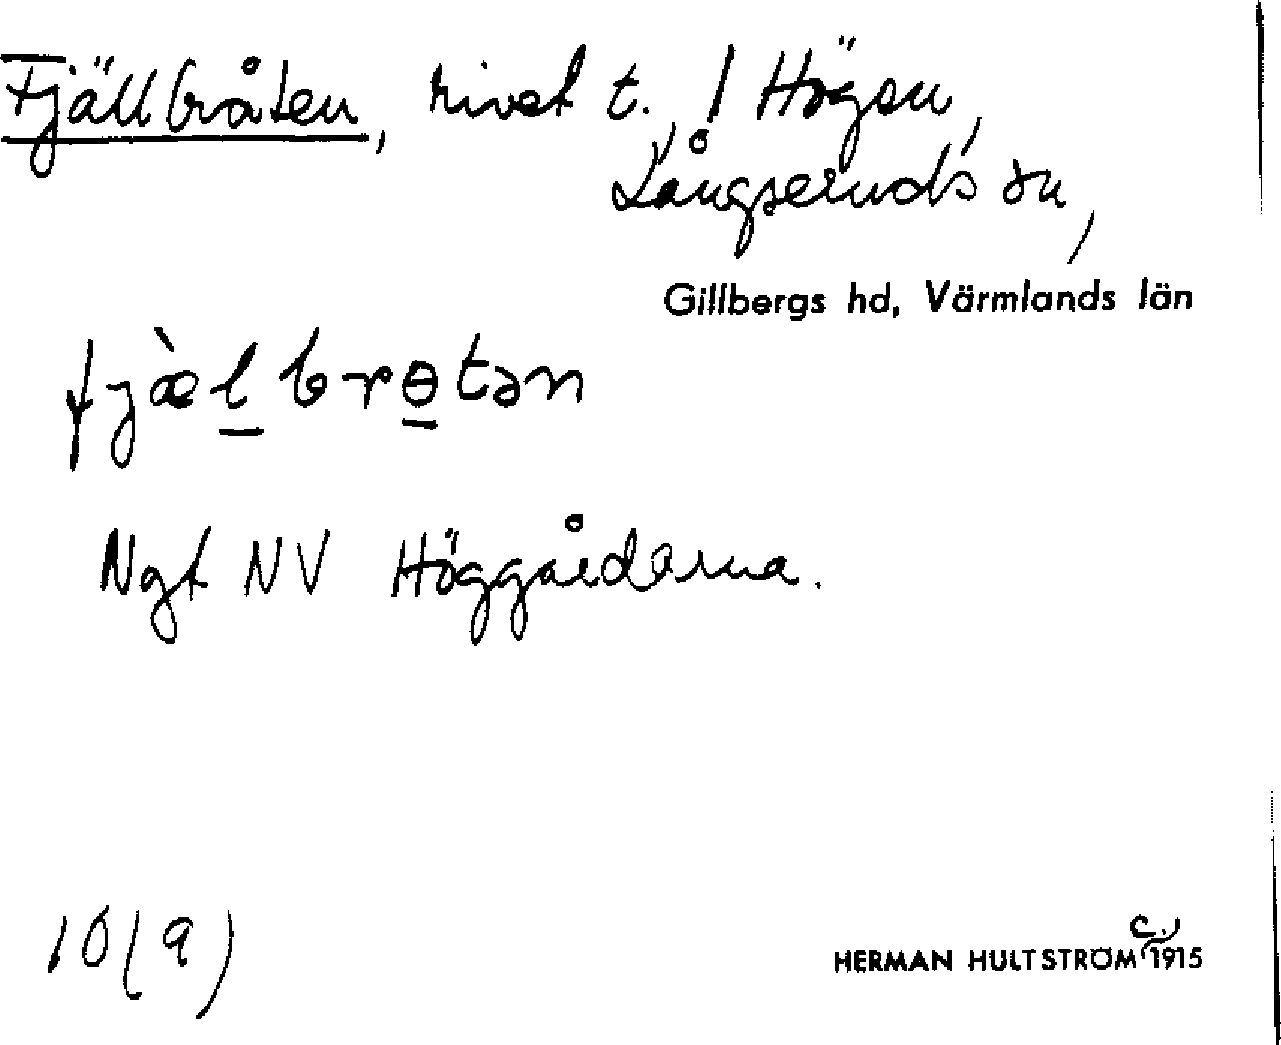 Fjällbråten, rivet t. / Högsn,
Långseruds sn,
Gillbergs hd, Värmlands län
fjæ̀l brɵtən
Ngt NV Höggårdarna.
10(9)
HERMAN HULTSTRÖM c. 1915